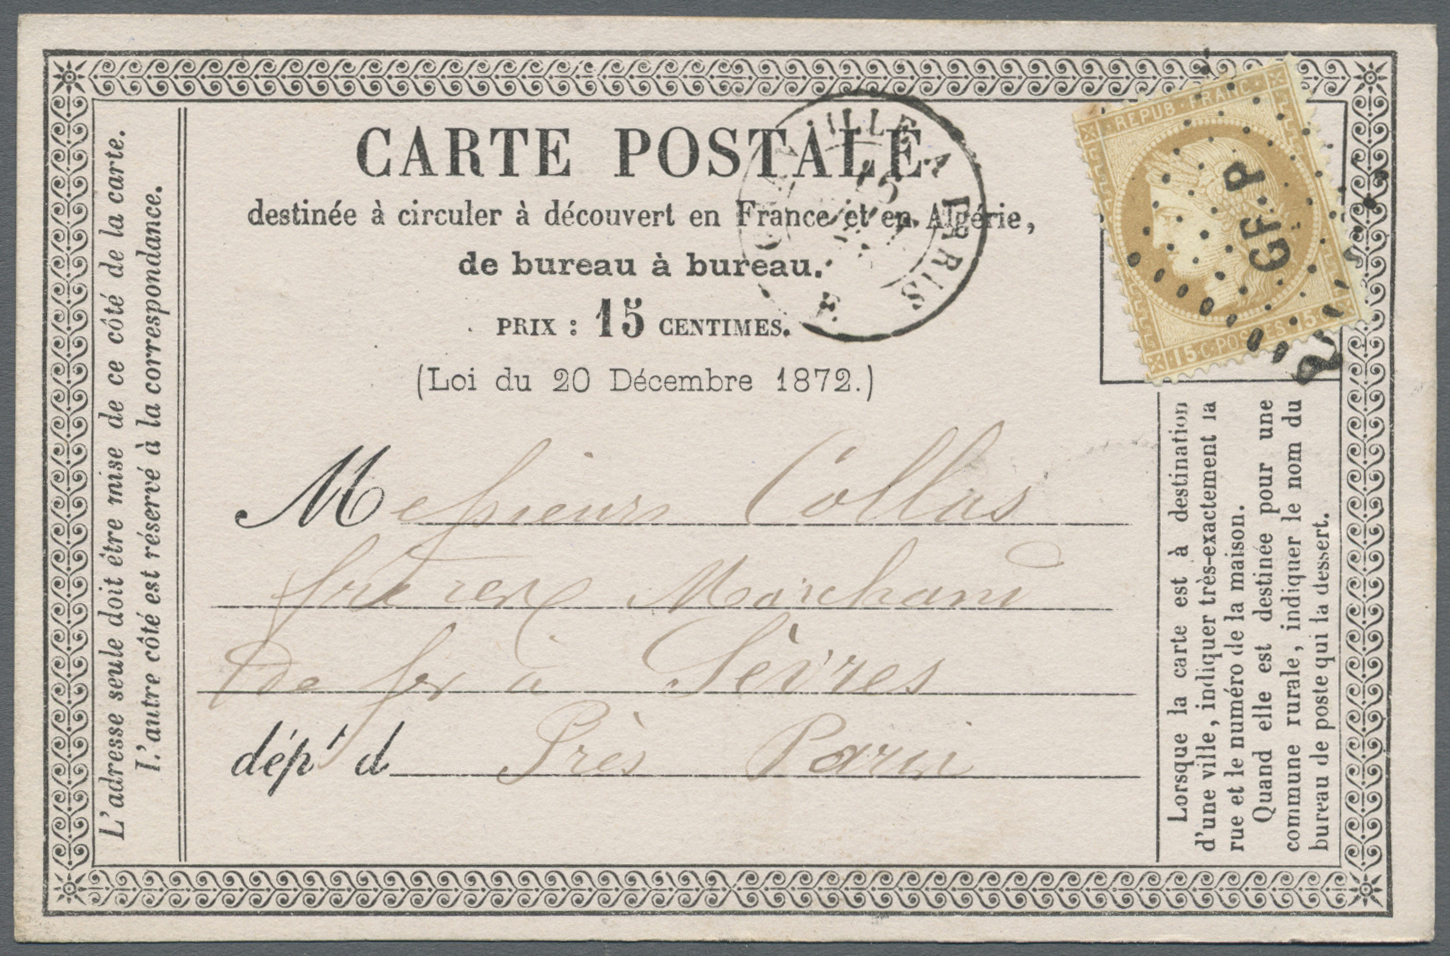 CARTE POSTALE
destinée à circuler à découvert en France et en Algérie,
de bureau à bureau.
PRIX : 15 CENTIMES.
(Loi du 20 Décembre 1872.)
Messieurs Collas
frères Marchand
de fer à Sèvres
dépt d Près Paris
L'adresse seule doit être mise de ce côté de la carte.
L'autre côté est réservé à la correspondance.
Lorsque la carte est à destination
d'une ville, indiquer très-exactement la
rue et le numéro de la maison.
Quand elle est destinée pour une
commune rurale, indiquer le nom du
bureau de poste qui la dessert.
REPUB·FRANC
15·C·POSTES·15·C
GF.P
2
VILLE A PARIS